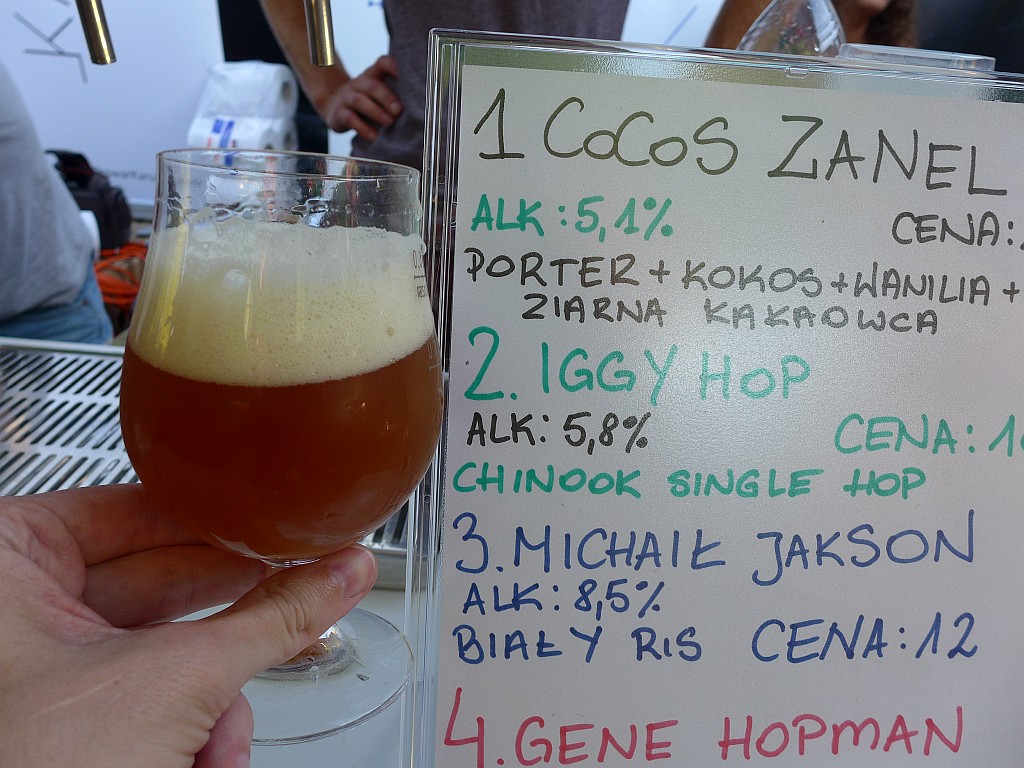 1 COCOS ZANEL
ALK: 5,1%
CENA:
PORTER + KOKOS + WANILIA +
ZIARNA KAKAOWCA
2. IGGY HOP
ALK: 5,8%
CENA: 1
CHINOOK SINGLE HOP
3. MICHAIŁ JAKSON
ALK: 8,5%
BIAŁY RIS CENA: 12
4. GENE HOPMAN